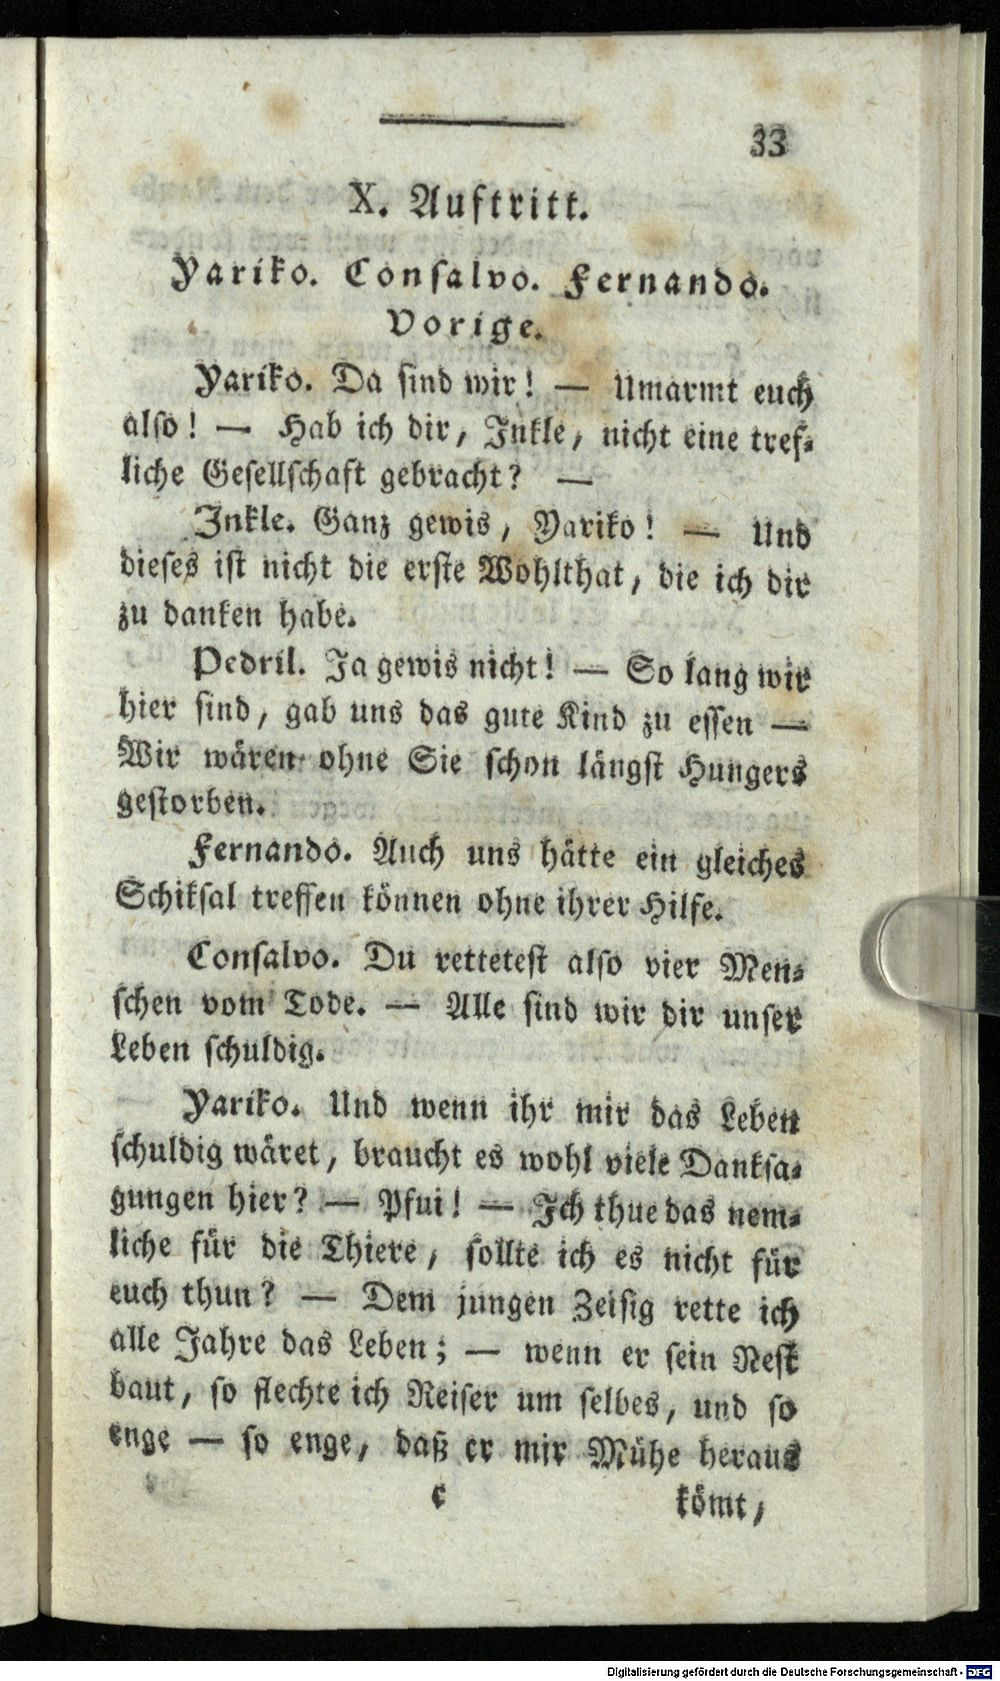 33
X. Auftritt.
Yariko. Consalvo. Fernando.
Vorige.
Yariko. Da sind wir! — Umarmt euch
also! — Hab ich dir, Inkle, nicht eine tref-
liche Gesellschaft gebracht? —
Inkle. Ganz gewis, Yariko! — Und
dieses ist nicht die erste Wohlthat, die ich dir
zu danken habe.
Pedril. Ja gewis nicht! — So lang wir
hier sind, gab uns das gute Kind zu essen —
Wir wären ohne Sie schon längst Hungers
gestorben.
Fernando. Auch uns hätte ein gleiches
Schiksal treffen können ohne ihrer Hilfe.
Consalvo. Du rettetest also vier Men-
schen vom Tode. — Alle sind wir dir unser
Leben schuldig.
Yariko. Und wenn ihr mir das Leben
schuldig wäret, braucht es wohl viele Danksa-
gungen hier? — Pfui! — Ich thue das nem-
liche für die Thiere, sollte ich es nicht für
euch thun? — Dem jungen Zeisig rette ich
alle Jahre das Leben; — wenn er sein Nest
baut, so flechte ich Reiser um selbes, und so
enge — so enge, daß er mir Mühe heraus
c kömt,
Digitalisierung gefördert durch die Deutsche Forschungsgemeinschaft - DFG